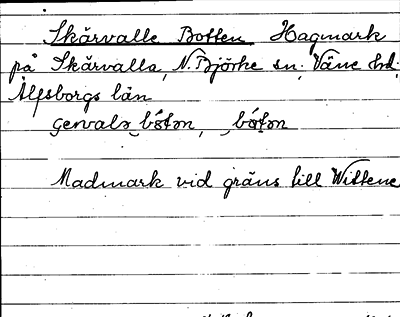 Skärvalle Botten Hagmark
på Skärvalla, N. Björke sn. Väne hd.
Älfsborgs län
bótən, bótən
Madmark vid gräns till Wittene